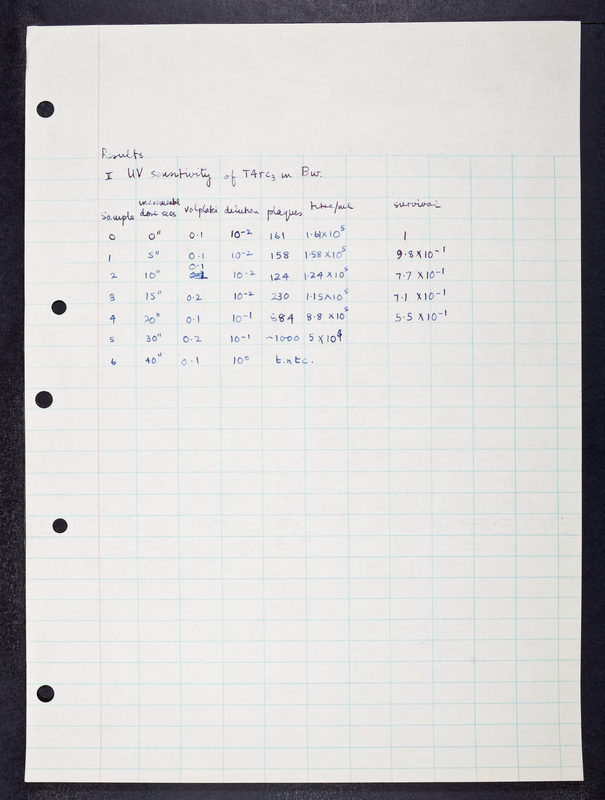 Results
I UV sensitivity of T4rc3 in Bw.
Sample incremental dose secs vol plated dilution plaques titre/ml survival
0 0" 0.1 10⁻² 161 1.61×10⁵ 1
1 5" 0.1 10⁻² 158 1.58×10⁵ 9.8×10⁻¹
2 10" 0.1 10⁻² 124 1.24×10⁵ 7.7×10⁻¹
3 15" 0.2 10⁻² 230 1.15×10⁵ 7.1×10⁻¹
4 20" 0.1 10⁻¹ 884 8.8×10⁵ 5.5×10⁻¹
5 30" 0.2 10⁻¹ ~1000 5×10⁴
6 40" 0.1 10⁰ t.n.t.c.